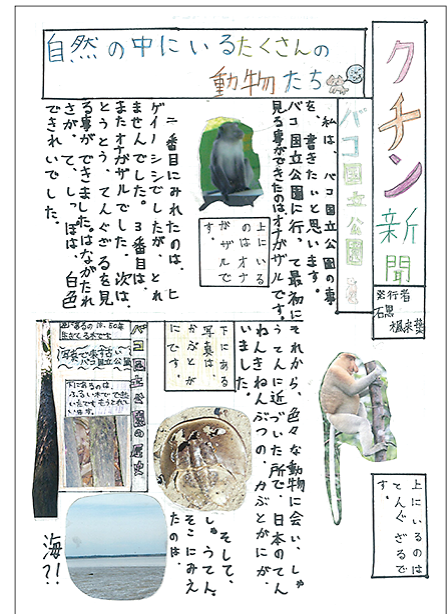 クチン新聞
発行者
石黒
バコ国立公園
自然の中にいるたくさんの
動物たち
私は、バコ国立公園の事
を、書きたいと思います。
バコ国立公園に行って最初に
見る事ができたのはオナガザルです。
上にいる
のはオナ
ガザルで
す。
二番目にみれたのは、ヒ
ゲイノシシでしたが、とれ
ませんでした。3番目は、
またオナガザルでした。次は、
とうとう、てんぐざるを見
る事ができました。はながたれ
さがって、しっぽは、白色
できれいでした。
上にいるのは
てんぐざるで
す。
それから、色々な動物に会い、しゅ
うてんに近づいた所で、日本のてん
ねんきねんぶつの、カブとがにが、
いました。
下にある
写真は
かぶとが
にです。
そして、
しゅうてん。
そこにみえ
たのは、
海?!
バコ国立公園の歴史